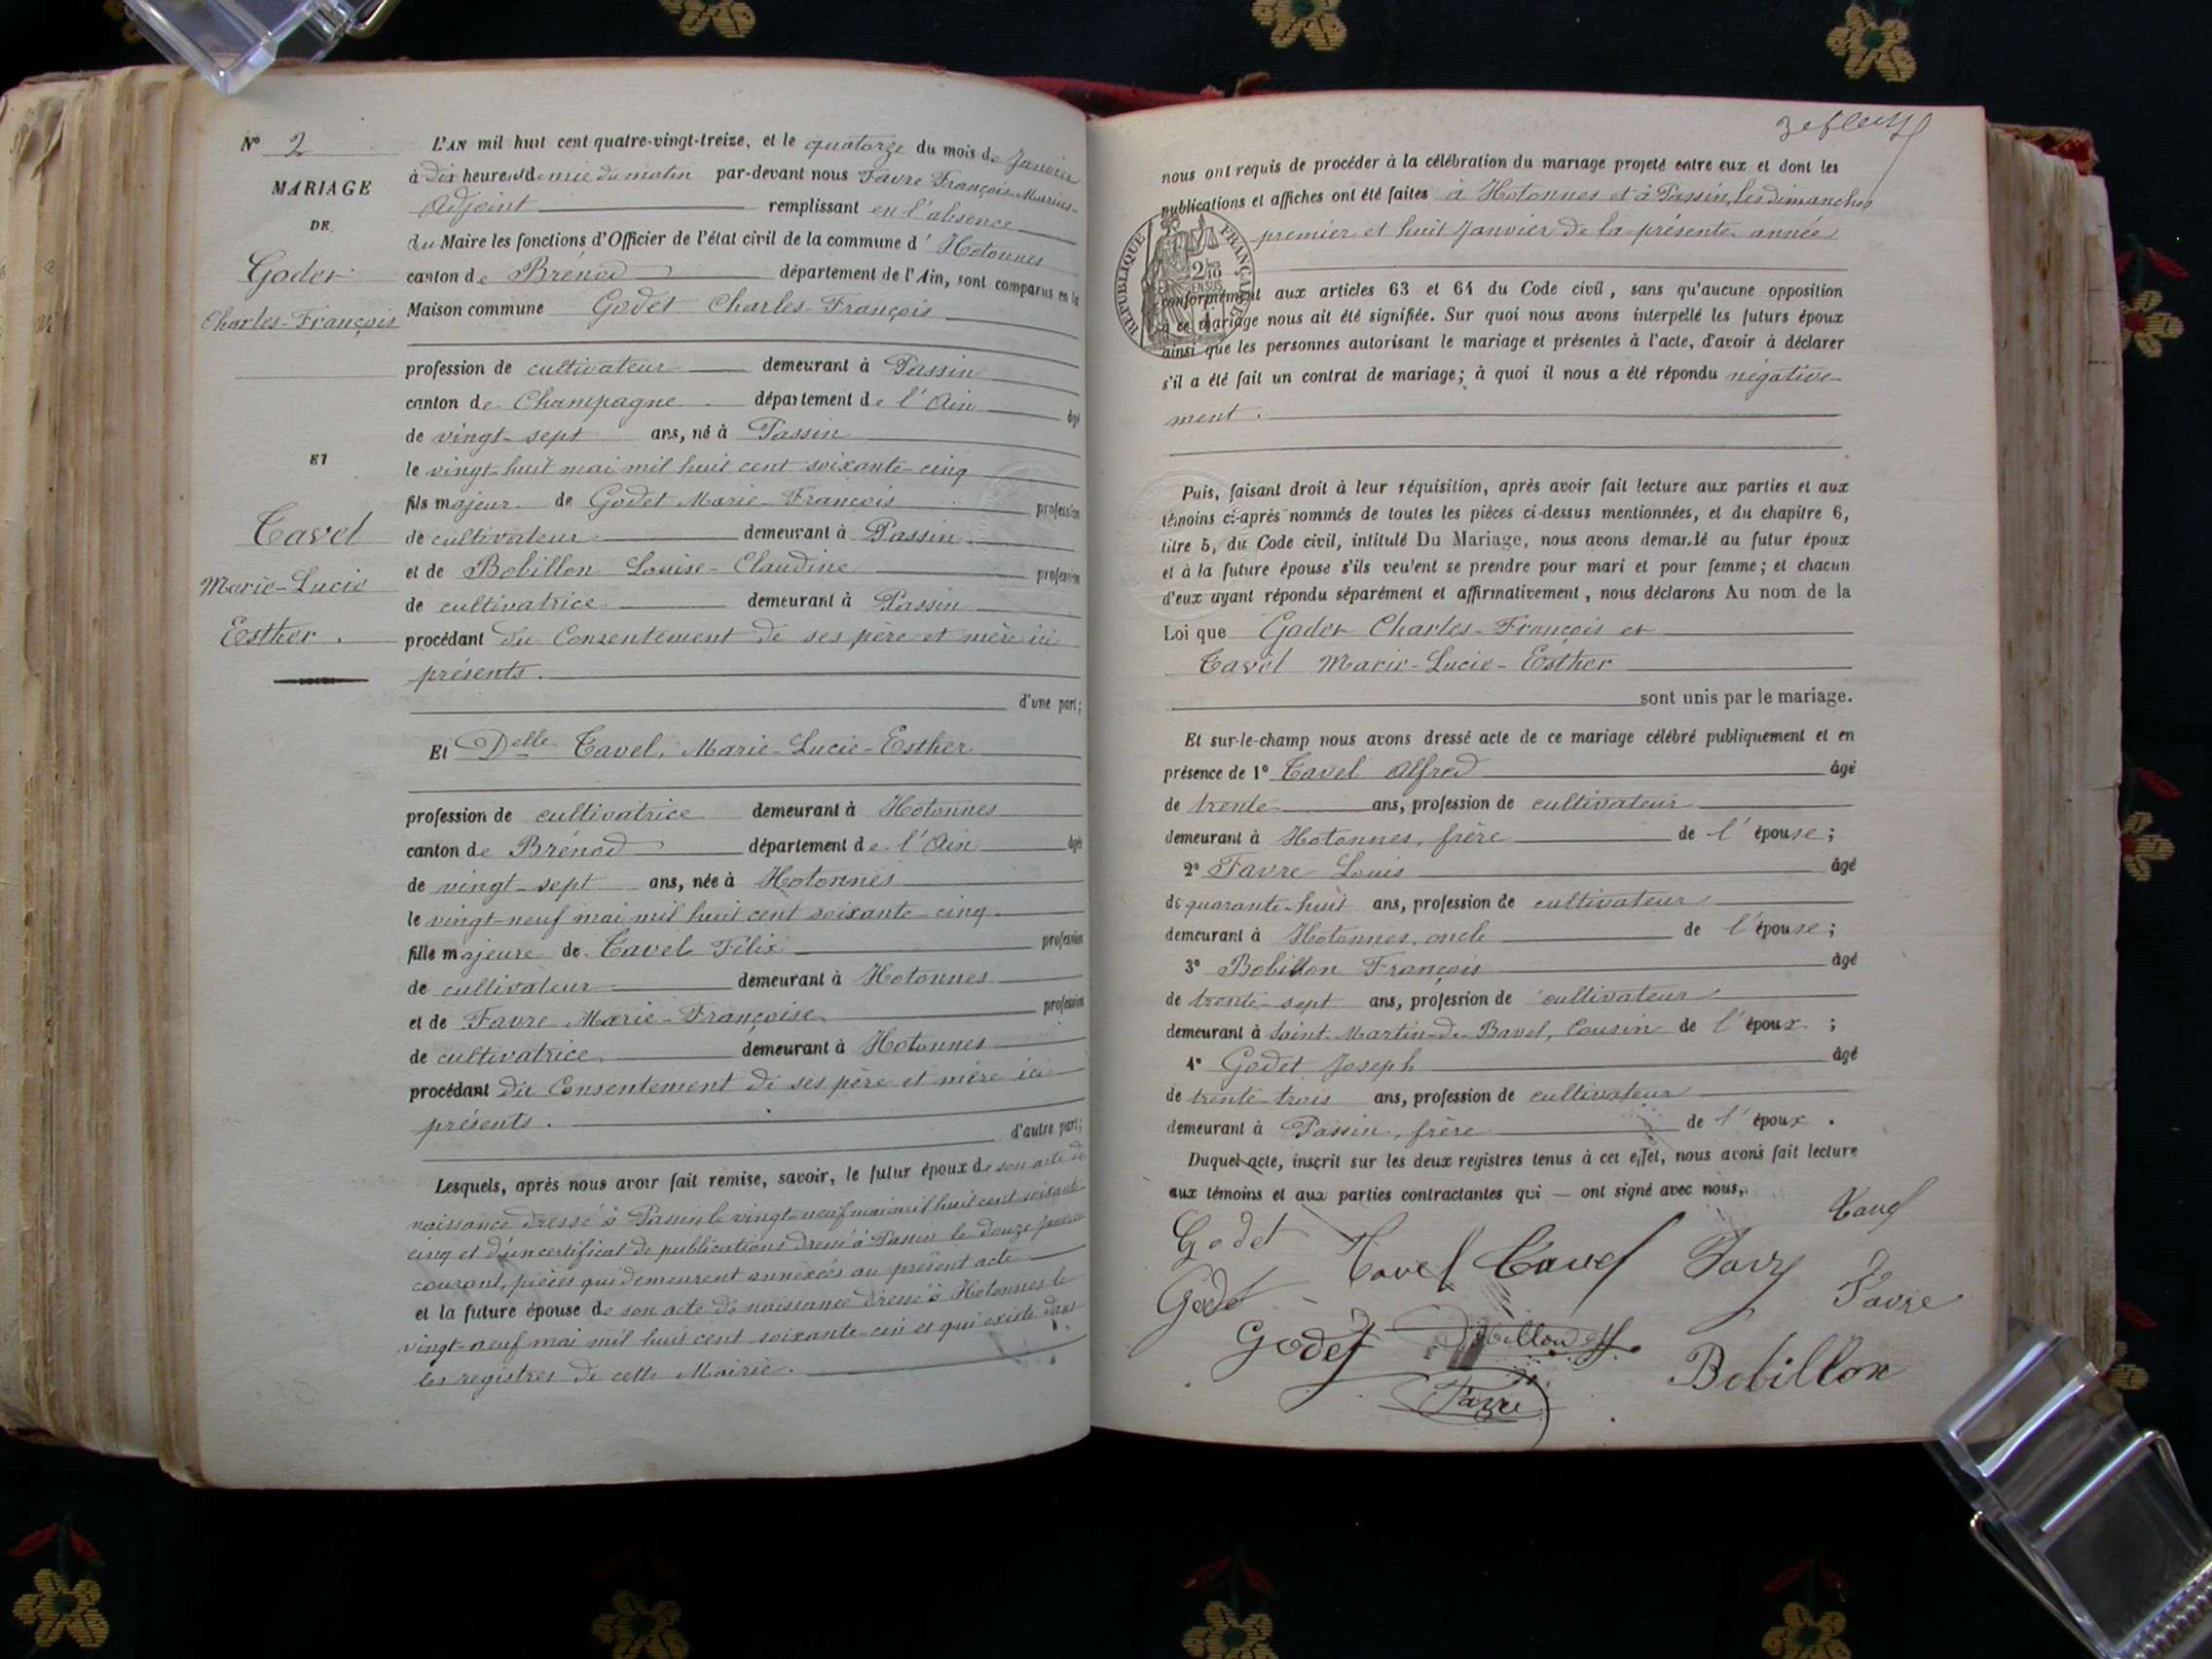 N° 2
MARIAGE
DE
Godet
Charles-François
ET
Tavel
Marie-Lucie
Esther.
L'AN mil huit cent quatre-vingt-treize, et le quatorze du mois de Janvier
à dix heures et demie du matin par-devant nous Favre François-Marius-
Adjoint remplissant en l'absence
du Maire les fonctions d'Officier de l'état civil de la commune d'Hotonnes
canton de Brénod département de l'Ain, sont comparus en la
Maison commune Godet Charles-François
profession de cultivateur demeurant à Passin
canton de Champagne département de l'Ain âgé
de vingt-sept ans, né à Passin
le vingt-huit mai mil huit cent soixante-cinq
fils majeur de Godet Marie-François profession
de cultivateur demeurant à Passin
et de Bobillon Louise-Claudine profession
de cultivatrice demeurant à Passin
procédant du Consentement de ses père et mère ici
présents.
d'une part;
Et Delle Tavel, Marie-Lucie-Esther
profession de cultivatrice demeurant à Hotonnes
canton de Brénod département de l'Ain âgée
de vingt-sept ans, née à Hotonnes
le vingt-neuf mai mil huit cent soixante-cinq
fille majeure de Tavel Félix profession
de cultivateur demeurant à Hotonnes
et de Favre Marie-Françoise profession
de cultivatrice demeurant à Hotonnes
procédant du Consentement de ses père et mère ici
présents.
d'autre part;
Lesquels, après nous avoir fait remise, savoir, le futur époux de son acte de
naissance dressé à Passin le vingt-neuf mai mil huit cent soixante
cinq et d'un certificat de publications dressé à Passin le douze Janvier
courant, pièces qui demeurent annexées au présent acte
et la future épouse de son acte de naissance dressé à Hotonnes le
vingt-neuf mai mil huit cent soixante-cin et qui existe dans
les registres de cette Mairie.
nous ont requis de procéder à la célébration du mariage projeté entre eux et dont les
publications et affiches ont été faites à Hotonnes et à Passin, les dimanches
premier et huit Janvier de la présente année
RÉPUBLIQUE FRANÇAISE
2/10
EN SUS
conformément aux articles 63 et 64 du Code civil, sans qu'aucune opposition
à ce mariage nous ait été signifiée. Sur quoi nous avons interpellé les futurs époux
ainsi que les personnes autorisant le mariage et présentes à l'acte, d'avoir à déclarer
s'il a été fait un contrat de mariage; à quoi il nous a été répondu négative-
ment.
Puis, faisant droit à leur réquisition, après avoir fait lecture aux parties et aux
témoins ci-après nommés de toutes les pièces ci-dessus mentionnées, et du chapitre 6,
titre 5, du Code civil, intitulé Du Mariage, nous avons demandé au futur époux
et à la future épouse s'ils veulent se prendre pour mari et pour femme; et chacun
d'eux ayant répondu séparément et affirmativement, nous déclarons Au nom de la
Loi que Godet Charles-François et
Tavel Marie-Lucie-Esther
sont unis par le mariage.
Et sur-le-champ nous avons dressé acte de ce mariage célébré publiquement et en
présence de 1° Tavel Alfred âgé
de trente ans, profession de cultivateur
demeurant à Hotonnes, frère de l'épouse;
2° Favre Louis âgé
de quarante-huit ans, profession de cultivateur
demeurant à Hotonnes, oncle de l'épouse;
3° Bobillon François âgé
de trente-sept ans, profession de cultivateur
demeurant à Saint-Martin-de-Bavel, Cousin de l'époux;
4° Godet Joseph âgé
de trente-trois ans, profession de cultivateur
demeurant à Passin, frère de l'époux.
Duquel acte, inscrit sur les deux registres tenus à cet effet, nous avons fait lecture
aux témoins et aux parties contractantes qui — ont signé avec nous,.
Godet Tavel Tavel Favre Tavel
Godet Favre
Godet Bobillon
Favre Bobillon